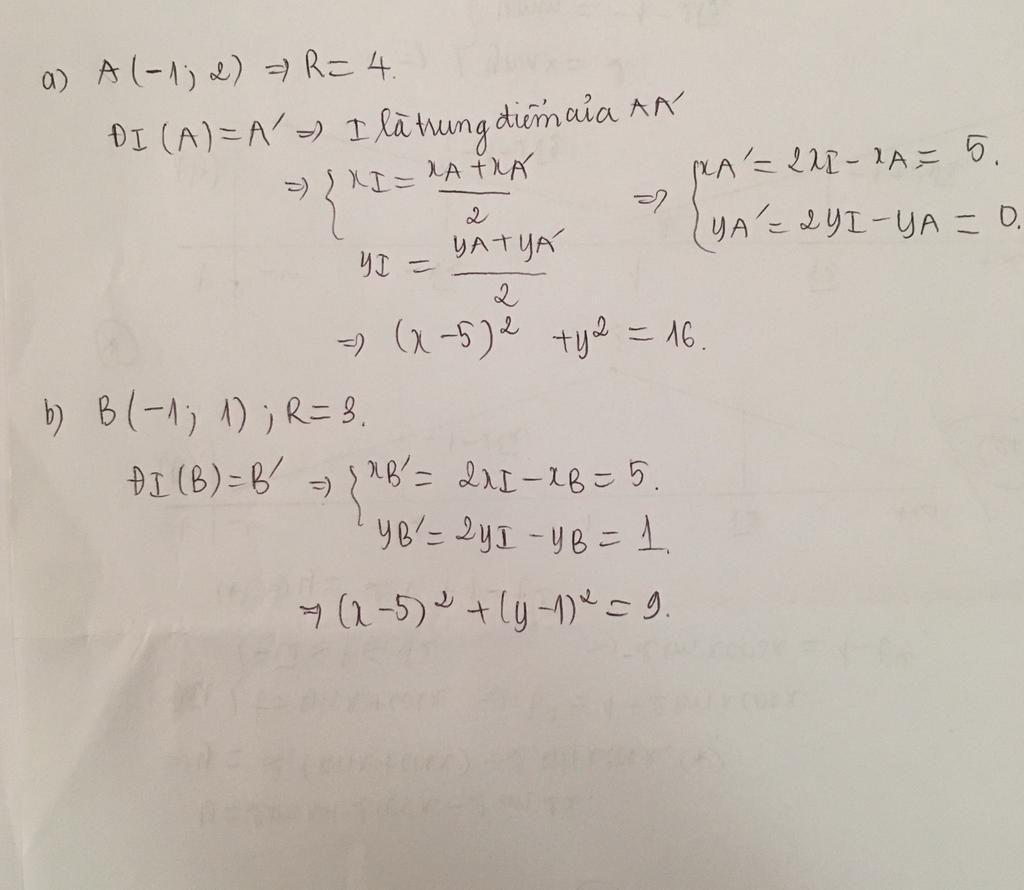 a) A(-1; 2) ⇒ R = 4.
ĐI (A) = A' ⇒ I là trung điểm của AA'
⇒ { xI = (xA + xA')/2 ⇒ { xA' = 2xI - xA = 5.
yI = (yA + yA')/2 yA' = 2yI - yA = 0.
⇒ (x - 5)² + y² = 16.
b) B(-1; 1); R = 3.
ĐI (B) = B' ⇒ { xB' = 2xI - xB = 5.
yB' = 2yI - yB = 1.
⇒ (x - 5)² + (y - 1)² = 9.